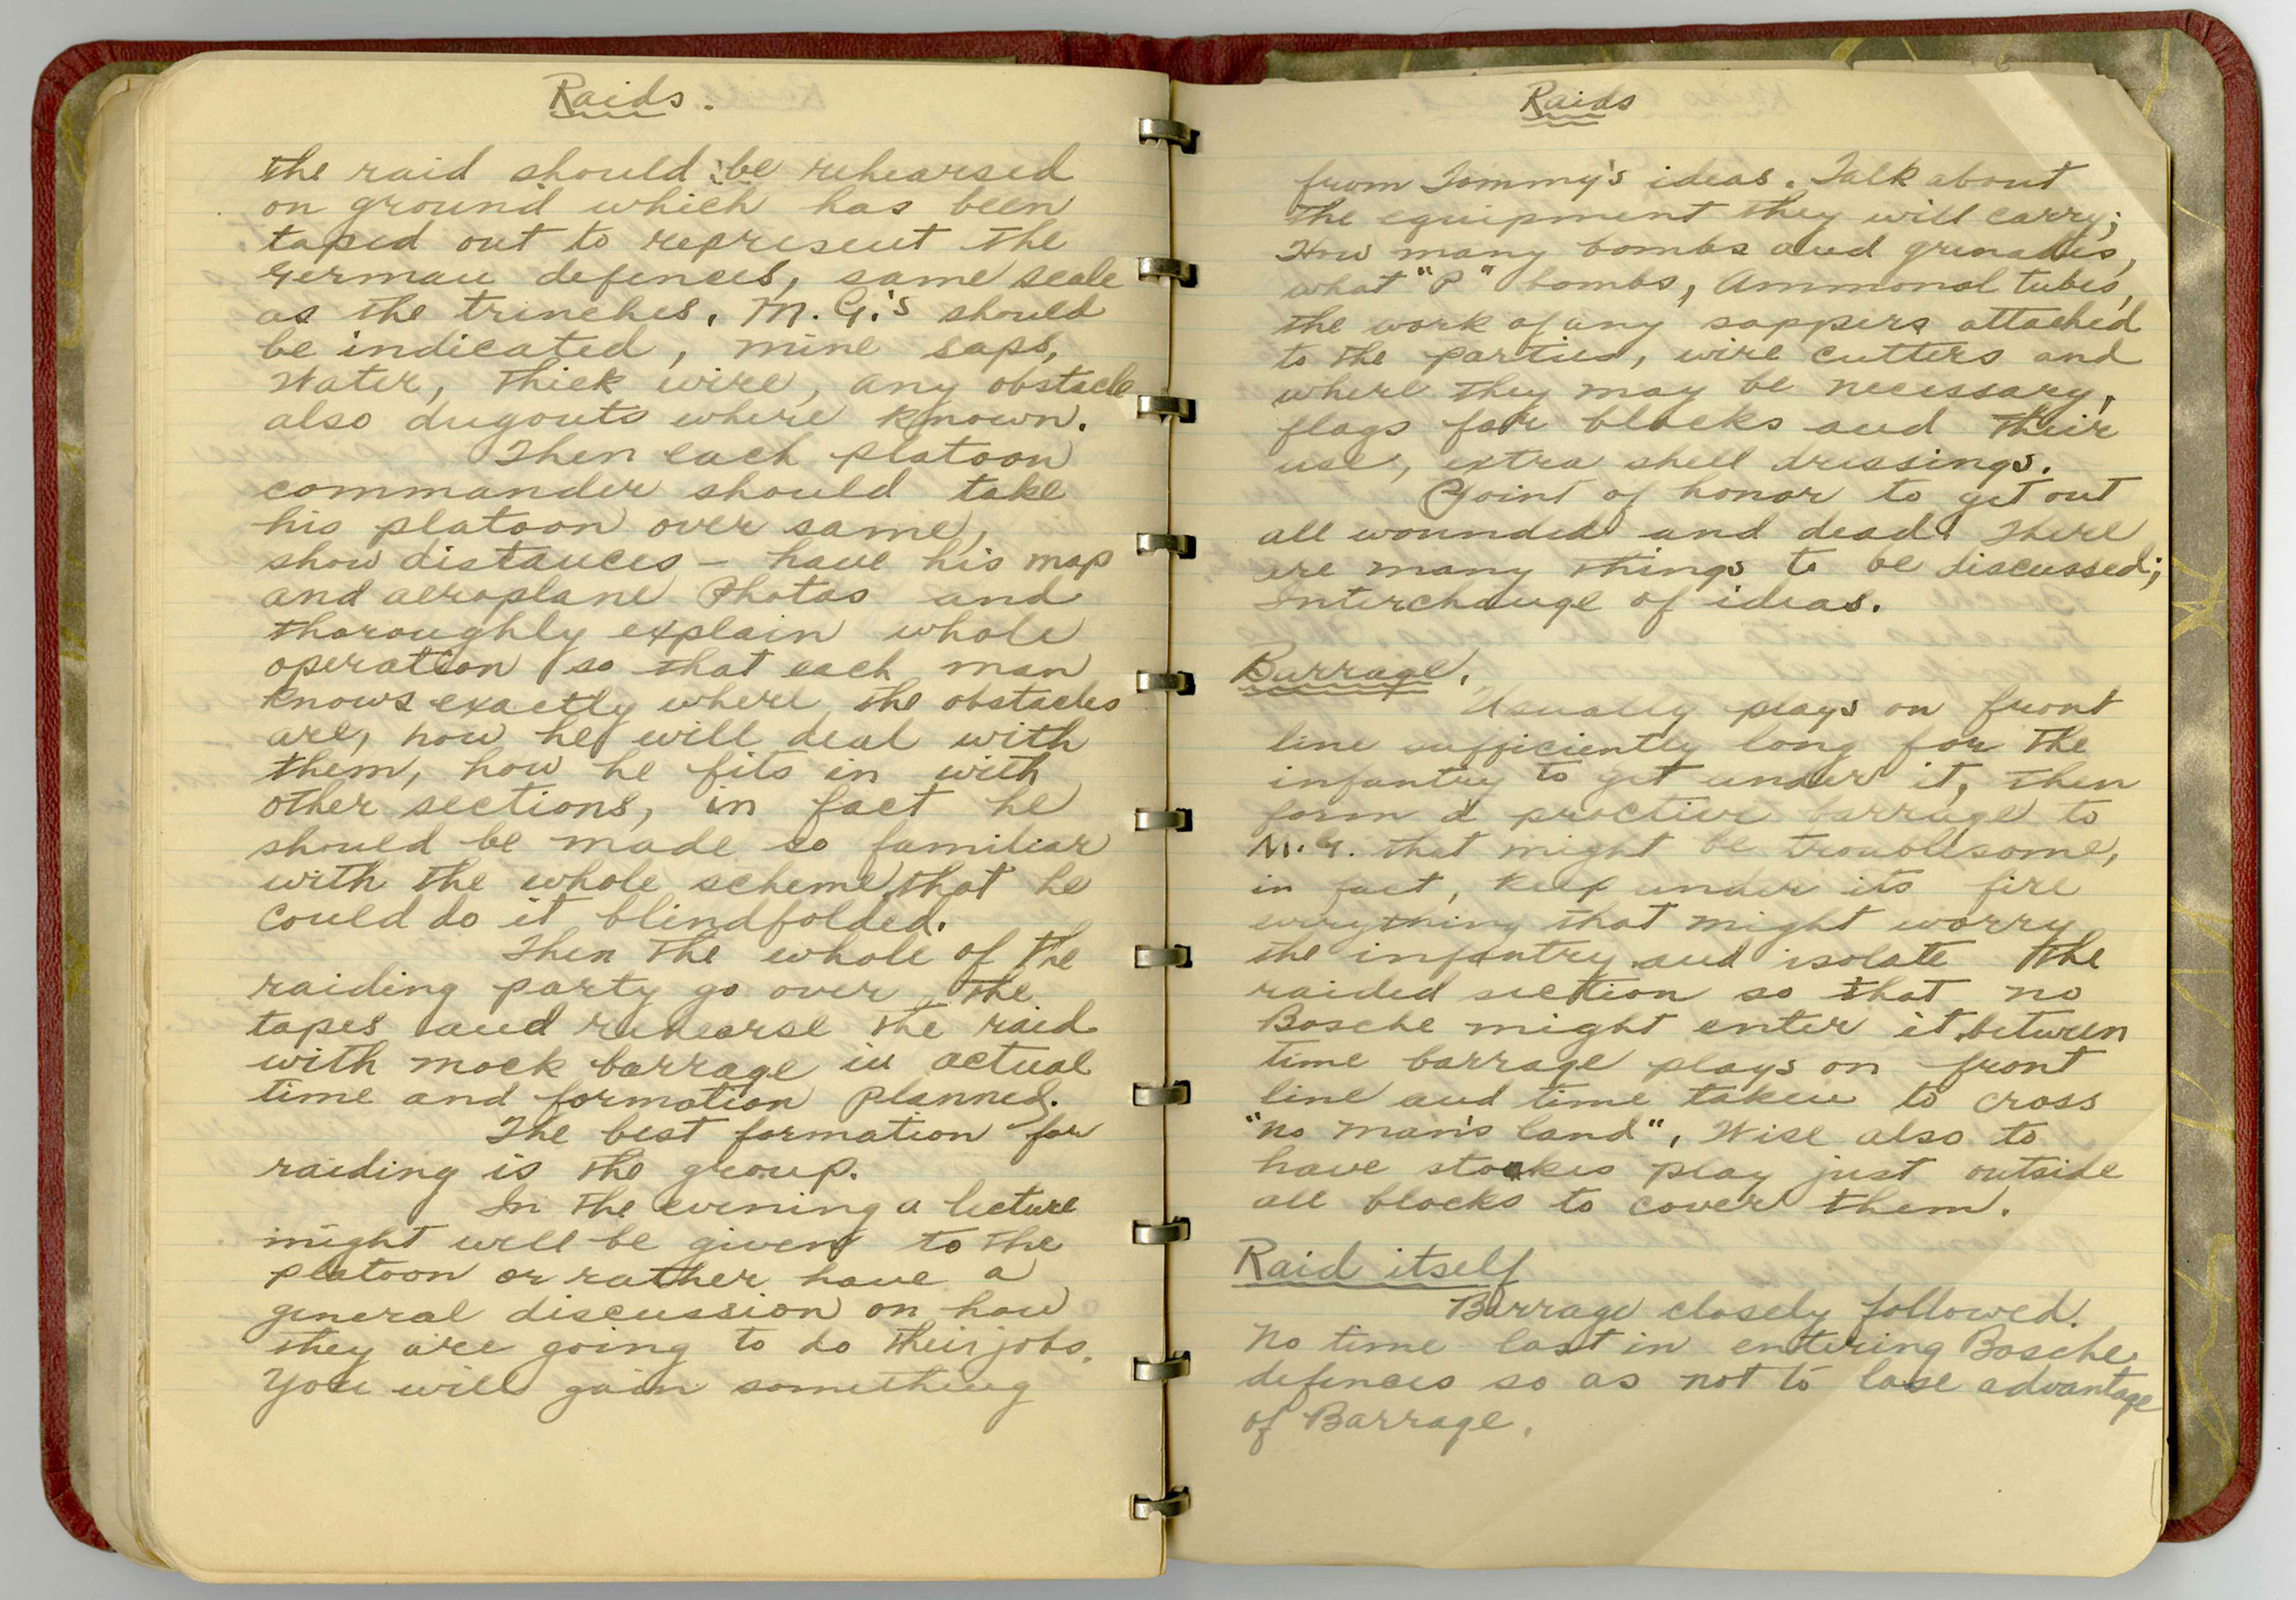 Raids.
the raid should be rehearsed
on ground which has been
taped out to represent the
German defences, same scale
as the trenches. M. G.'s should
be indicated, mine saps,
Water, thick wire, any obstacle
also dugouts where known.
Then each platoon
commander should take
his platoon over same,
show distances - have his map
and aeroplane Photos and
thoroughly explain whole
operation so that each man
knows exactly where the obstacles
are, how he will deal with
them, how he fits in with
other sections, in fact he
should be made so familiar
with the whole scheme, that he
could do it blindfolded.
Then the whole of the
raiding party go over the
tapes and rehearse the raid
with mock barrage in actual
time and formation planned.
The best formation for
raiding is the group.
In the evening a lecture
might well be given to the
platoon or rather have a
general discussion on how
they are going to do their jobs.
You will gain something
Raids
from Tommy's ideas. Talk about
the equipment they will carry;
How many bombs and grenades,
what "P" bombs, Ammonal tubes,
the work of any sappers attached
to the parties, wire cutters and
where they may be necessary,
flags for blocks and their
use, extra shell dressings.
Point of honor to get out
all wounded and dead. There
are many things to be discussed;
Interchange of ideas.
Barrage.
Usually plays on front
line sufficiently long for the
infantry to get under it, then
form a proctive barrage to
M.G. that might be troublesome,
in fact, keep under its fire
everything that might worry
the infantry and isolate the
raided section so that no
Bosche might enter it between
time barrage plays on front
line and time taken to cross
"No man's land", Wise also to
have stokes play just outside
all blocks to cover them.
Raid itself
Barrage closely followed.
No time lost in entering Bosche
defences so as not to lose advantage
of Barrage.